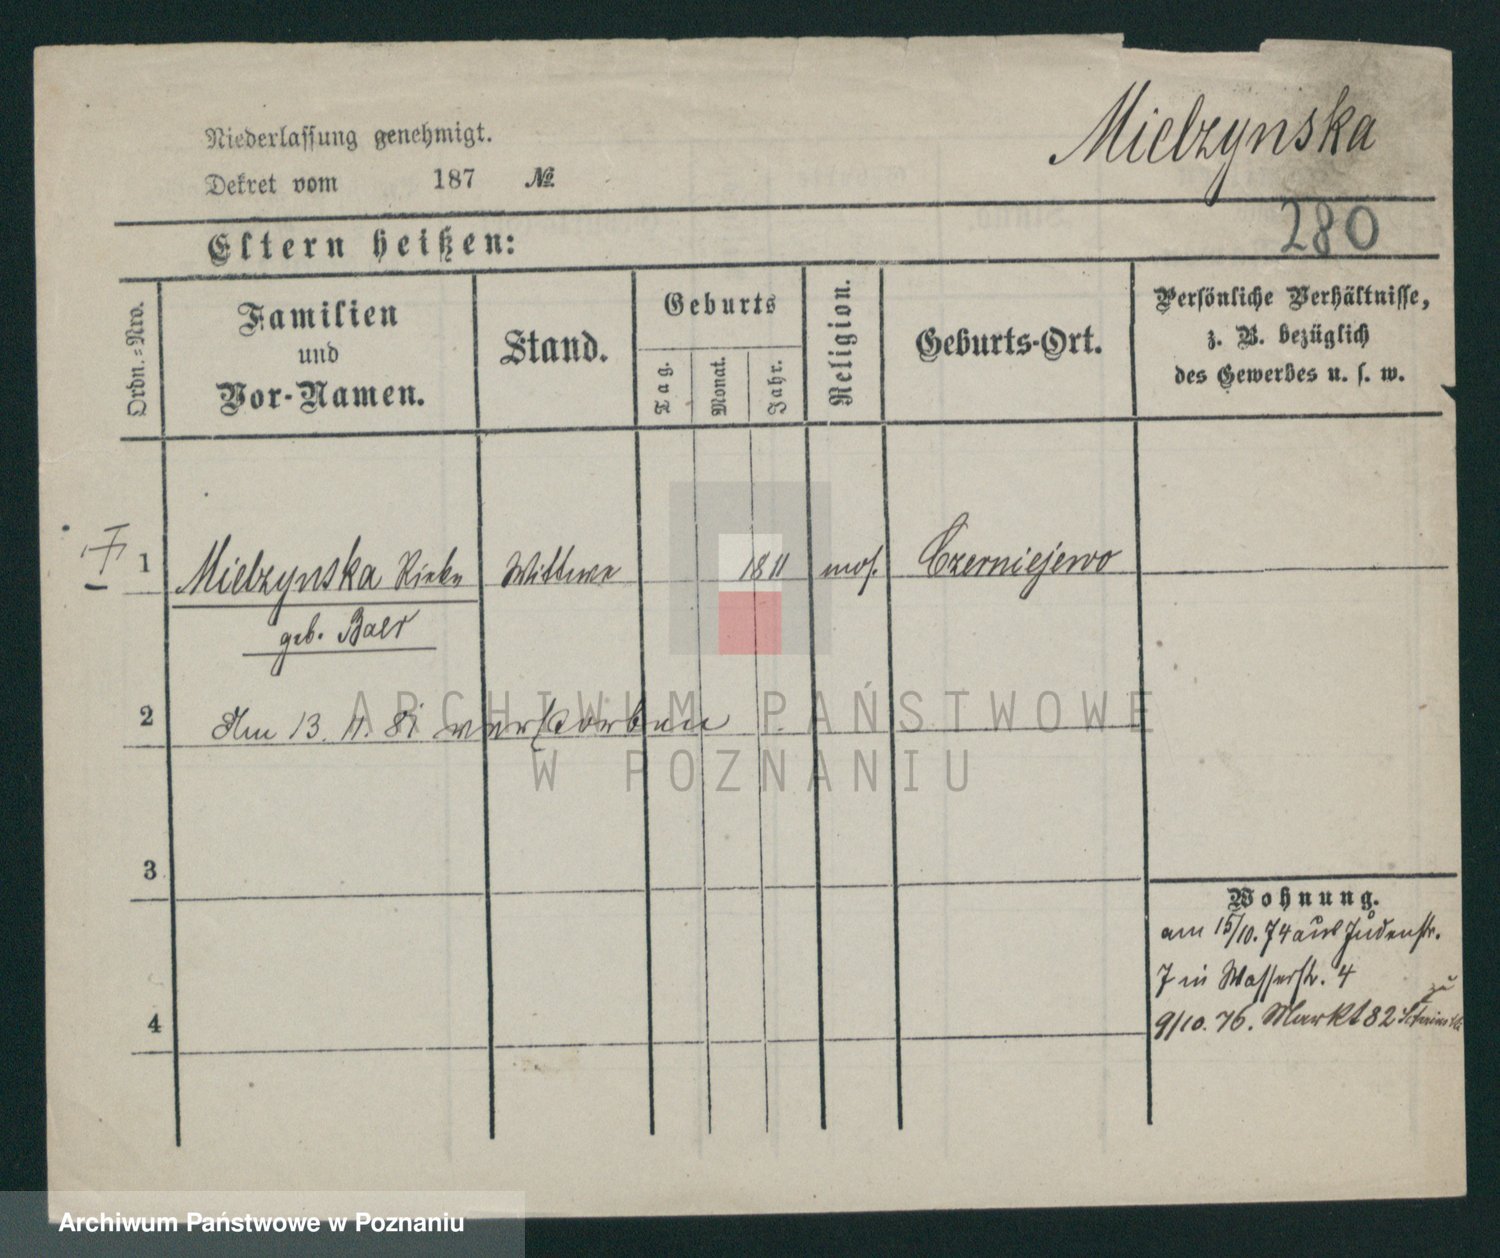 Mielzynska
Niederlassung genehmigt.
Dekret vom 187 №
280
Eltern heißen:
Ordn.=Nro.
Familien
und
Vor-Namen.
Stand.
Geburts
Tag.
Monat.
Jahr.
Religion.
Geburts-Ort.
Persönliche Verhältnisse,
z. B. bezüglich
des Gewerbes u. s. w.
1 Mielzynska Rieke Wittwe 1811 mos. Czerniejewo
geb. Baer
2 Am 13. 4. 81 verstorben
3
4
Wohnung.
am 15/10. 74 aus Judenstr.
7 in Wasserstr. 4
9/10. 76. Markt 82 zu
ARCHIWUM PAŃSTWOWE
W POZNANIU
Archiwum Państwowe w Poznaniu